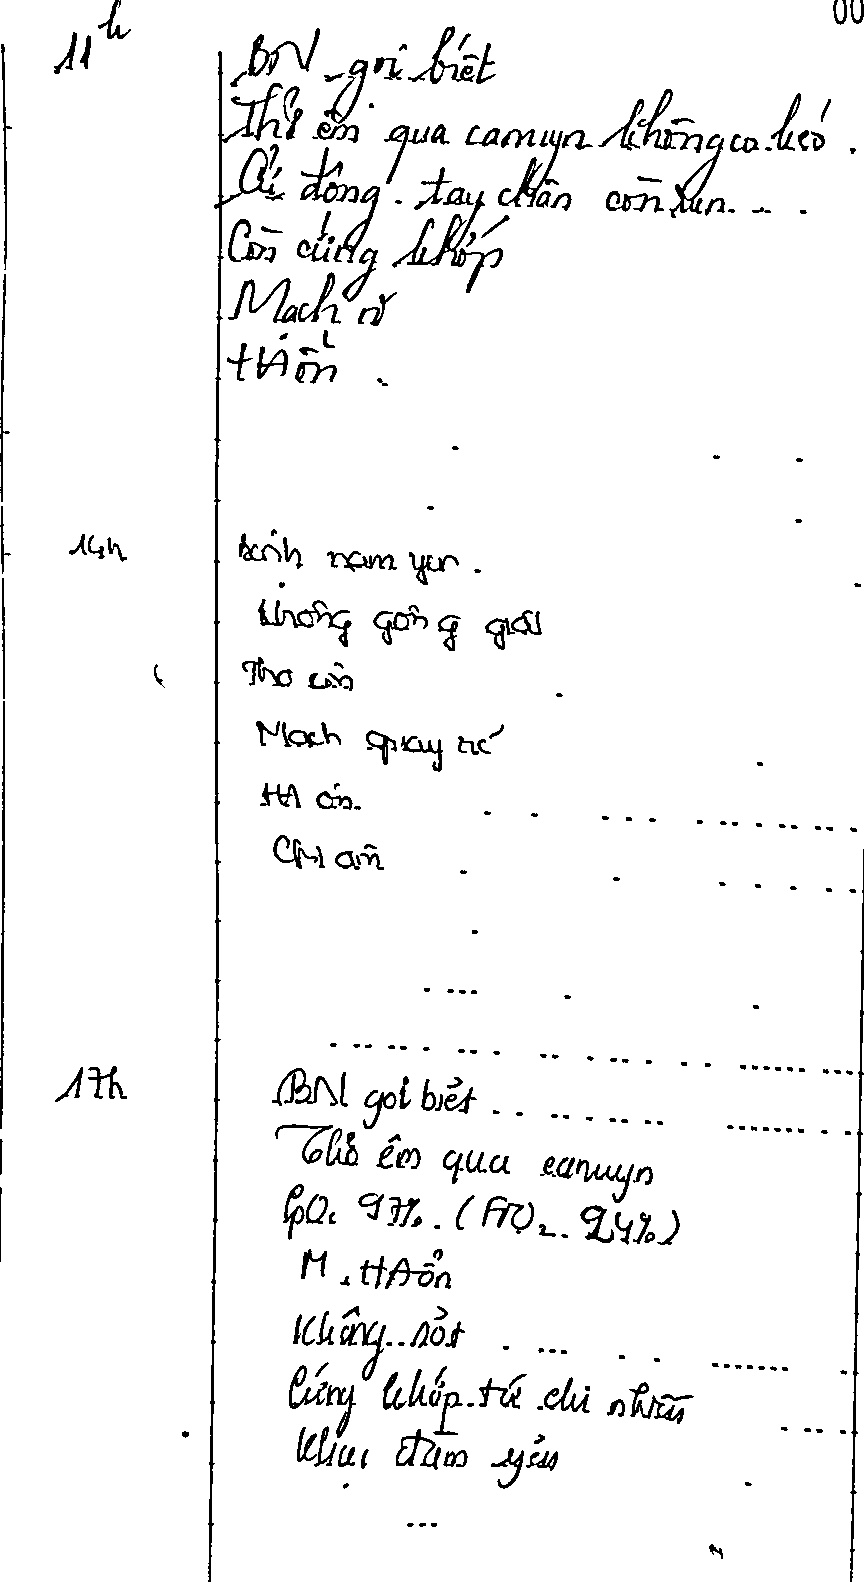 00
11h
BN gọi biết
Thở êm qua canuyn không co kéo.
Cử động tay chân còn run...
Còn cứng khớp
Mạch rõ
HA ổn.
14h
Bệnh nằm yên.
Không gồng giật
Thở êm
Mạch quay rõ
HA ổn.
Chi ấm
17h
BN gọi biết
Thở êm qua canuyn
SpO2 97%. (FiO2 24%)
M, HA ổn
Không sốt
Cứng khớp tứ chi nhiều
Khạc đàm yếu